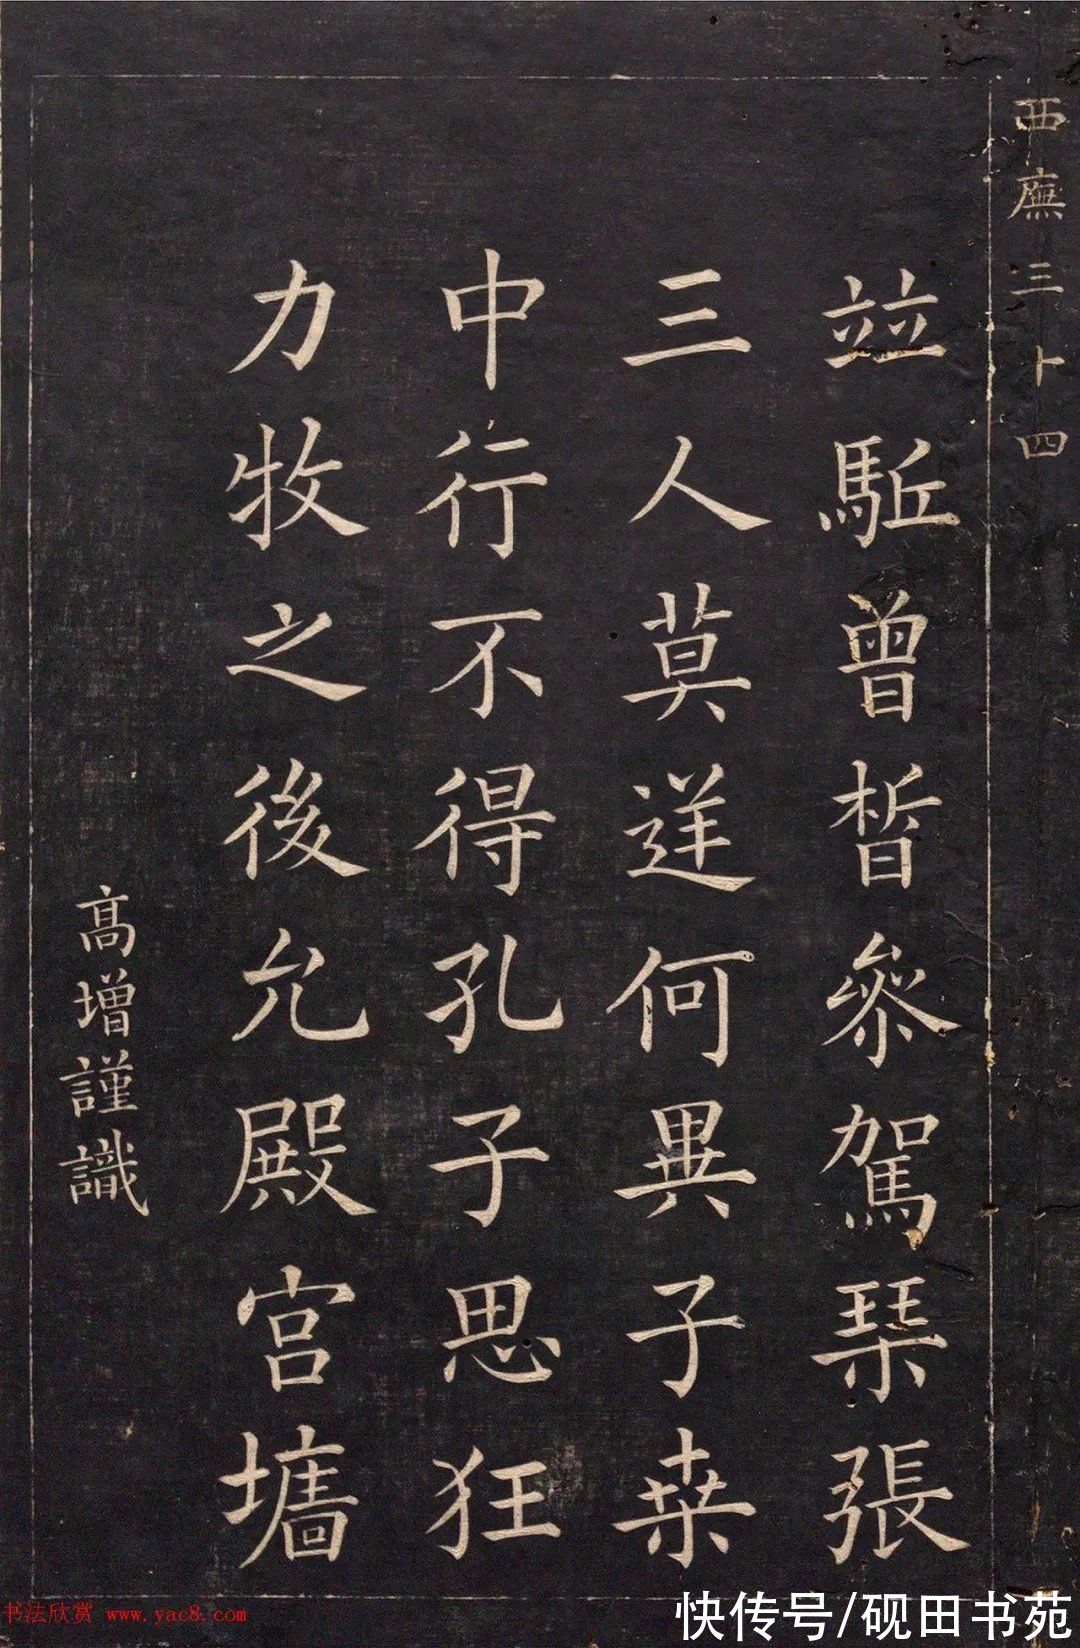 西廡三十四
竝駈曾晳叅駕琹張
三人莫逆何異子桒
中行不得孔子思狂
力牧之後允殿宫墻
高增謹識
书法欣赏 www.yac8.com
快传号/砚田书苑